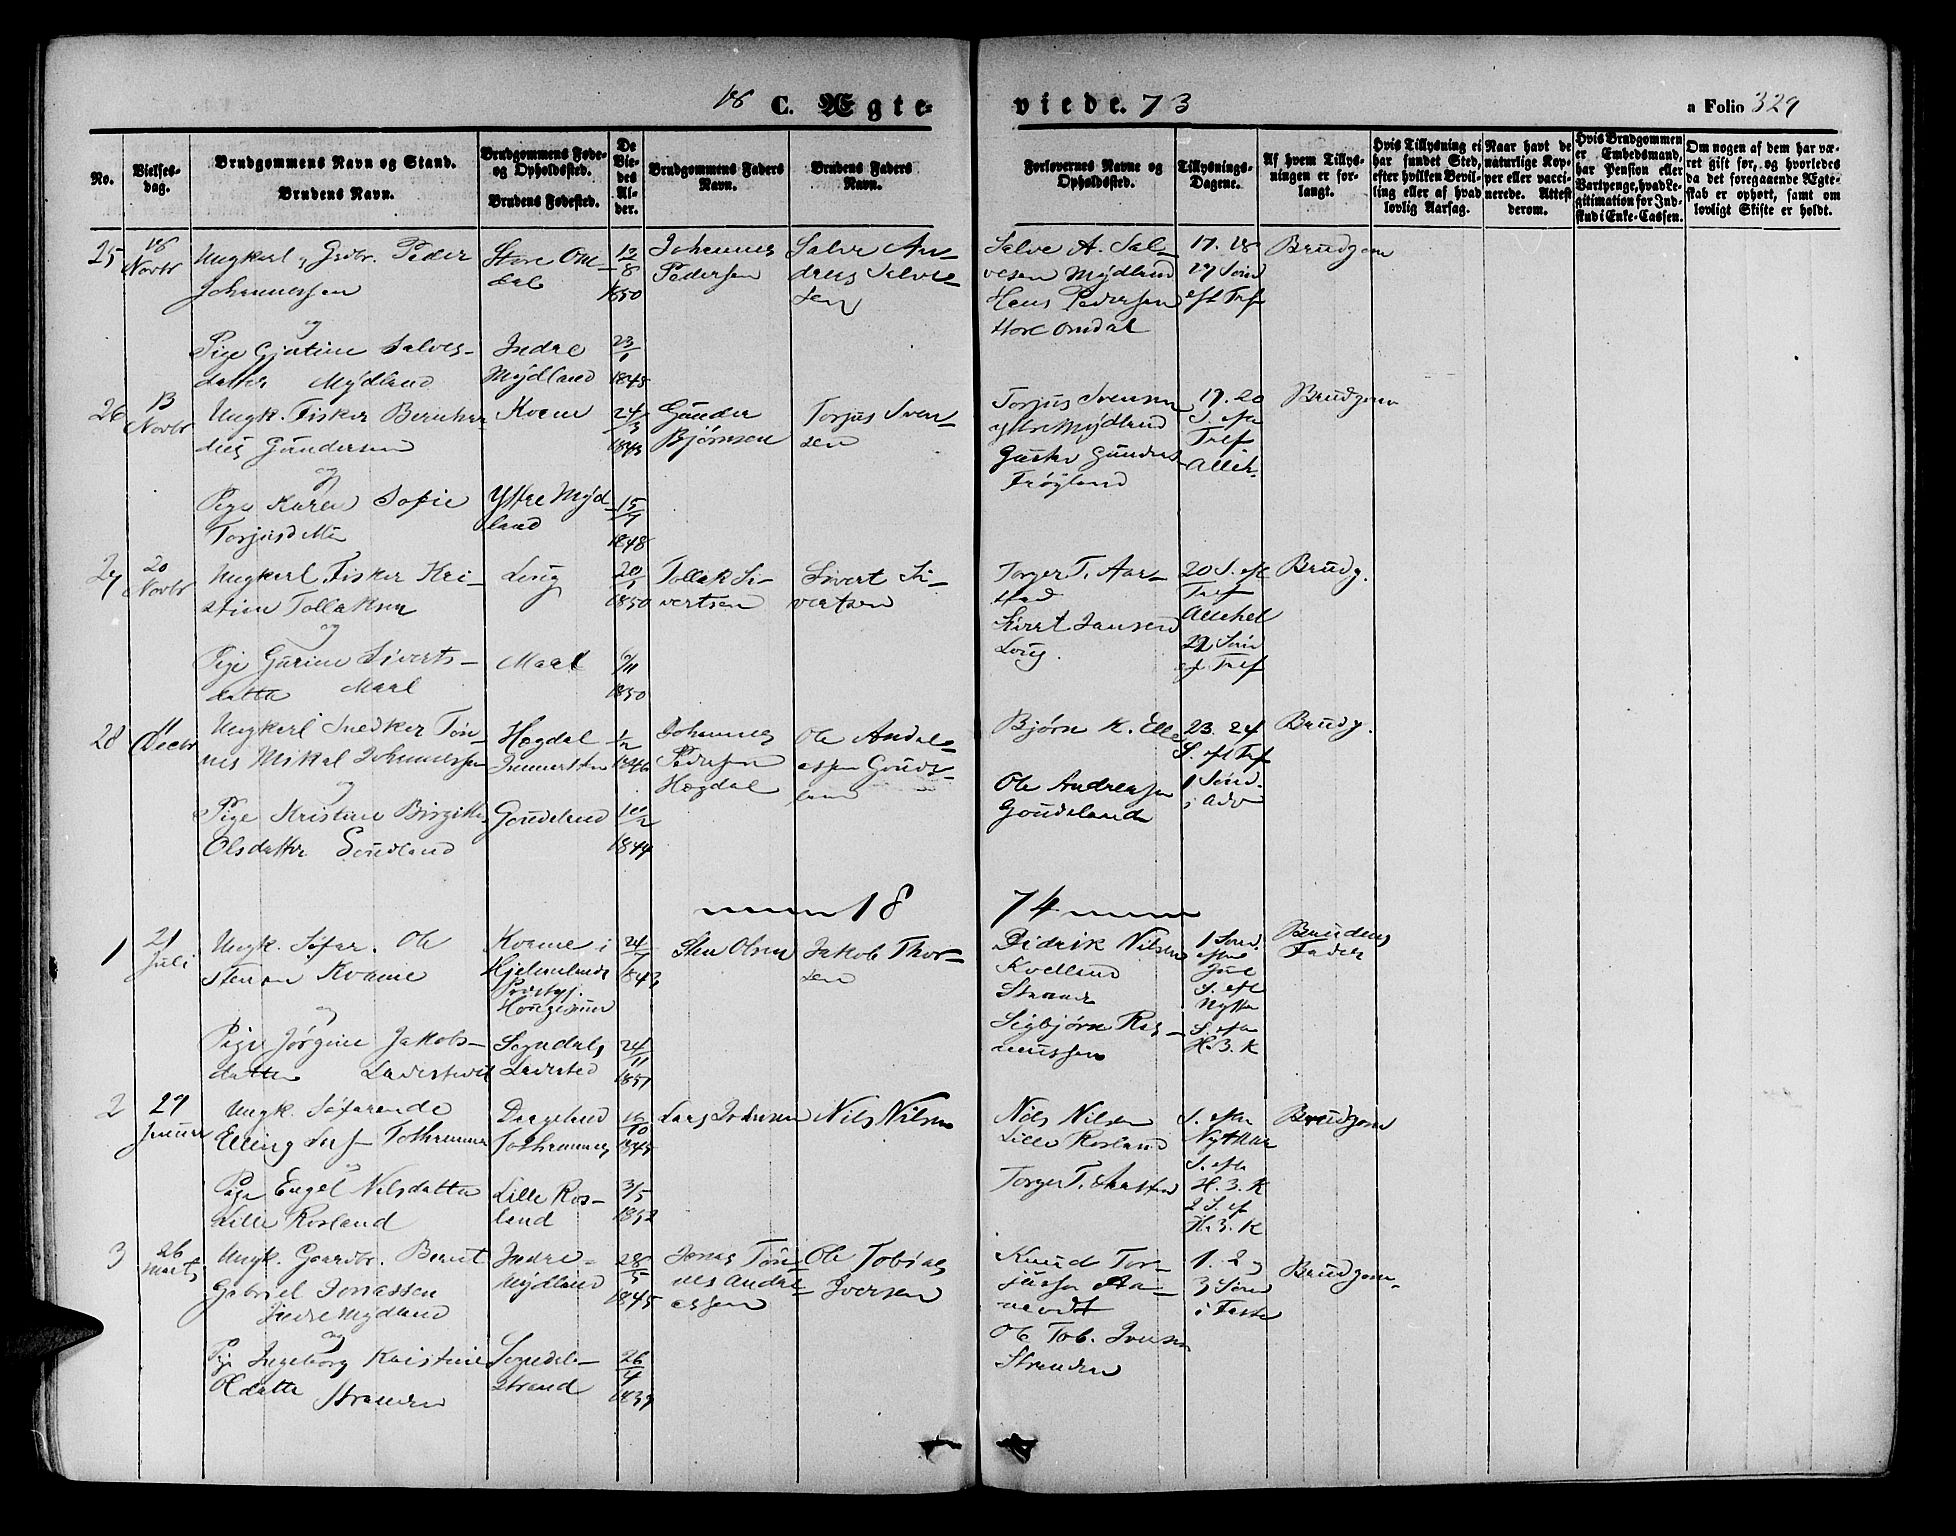 18 C. Ægte-
viede. 73
a Folio 329
No.
Vielses-
dag.
Brudgommens Navn og Stand.
Brudens Navn.
Brudgommens Føde-
og Opholdssted.
Brudens Fødested.
De
Vie-
des
Al-
der.
Brudgommens Faders
Navn.
Brudens Faders
Navn.
Forlovernes Navne og
Opholdssted.
Tillysnings-
Dagene.
Af hvem Tillys-
ningen er for-
langt.
Hvis Tillysning ei
har fundet Sted,
efter hvilken Bevil-
ling eller af hvad
lovlig Aarsag.
Naar havt de
naturlige Kop-
per eller vacci-
nerede. Attest
derom.
Hvis Brudgommen
er Embedsmand,
har Pension eller
Vartpenge, hvad Le-
gitimation for Ind-
skud i Enke-Cassen.
Om nogen af dem har væ-
ret gift før, og hvorledes
da det foregaaende Ægte-
skab er ophørt, samt om
lovligt Skifte er holdt.
25
Novbr
Ungkarl, Grdbr. Peder
Johannessen
og
Pige Gjertine Salves-
datter Mydland
Store Om-
dal
Indre
Mydland
12/8
1850
23/1
1848
Johannes
Pedersen
Salve An-
dreas Salve-
sen
Salve A. Sal-
vesen Mydland
Hans Pedersen
Store Omdal
17. 18
19 Sønd
eft Tref
Brudgom
26
13
Novbr
Ungk. Fisker Bernhar-
dus Gundersen
og
Pige Karen Sofie
Torjusdttr
Kvane
Ystre Myd-
land
24/3
1843
15/9
1848
Gunder
Bjørnsen
Torjus Sven-
sen
Torjus Svensen
ystre Mydland
Gunders
Frøyland
19. 20
S. efter
Tref
Alleh.
Brudgom
27
20
Novbr
Ungkarl, Fisker Kri-
stian Tollaksen
og
Pige Gurine Siverts-
datter Maal
Loug
Maal
20/1
1850
6/11
1850
Tollak Si-
vertsen
Sivert Si-
vertsen
Torger T. Aar-
stad
Sivert Jansen
Loug.
20 S. eft
Tref
Allehel
22 Sønd
ef Tref
Brudg.
28
11
Decbr
Ungkarl Snedker Tøn-
nes Mikal Johannessen
og
Pige Kristine Birgitte
Olsdatter Goudland
Høgdal
Goudeland
1/2
1846
10/2
1844
Johannes
Pedersen
Høgdal
Ole Andre-
assen Gouds-
land
Bjørn K. Elle
Ole Andreassen
Goudeland
23. 24
S. eft Tref
1 Sønd.
i Adv
Brudg.
18
74
1
21
Juli
Ungk. Søfar. Ole
Stensen Kvame
og
Pige Jørgine Jakobs-
datter Ladested
Kvame i
Hjelmelands
Præstegj.
Sogndals
Ladested
24/7
1843
24/11
1851
Sten Olsen
Jakob Thor-
sen
Didrik Nilsen
Kvelland
Strand
Sigbjørn Ras-
mussen
1 Sønd.
efter
Jul
S. eft
Nytta
S. efter
H. 3. K
Brudens
Fader
2
29
Januar
Ungk. Søfarende
Elling Larss Tothammer
og
Pige Engel Nilsdatter
Lille Rosland
Drageland
Tothammer
Lille Ros-
land
16/10
1845
3/5
1852
Lars Johnsen
Nils Nilsen
Nils Nilsen
Lille Rosland
Torger T. Aarstad
S. efter
Nytaar
S. efter
H. 3. K
2 S. ef
H. 3. K
Brudgom
3
26
Marts
Ungk. Gaardbr. Berent
Gabriel Jonassen
Indre Mydland
og
Pige Ingeborg Kristine
Olsdatter Stranden
Indre
Mydland
Sogndals-
strand
28/5
1845
26/4
1839
Jonas Tøn-
nes Andre-
assen
Ole Tobias
Iversen
Knud Tor-
jussen Aa-
nevodt
Ole Tob. Iversen
Stranden
1. 2 og
3 Sønd
i Faste
Brudgom